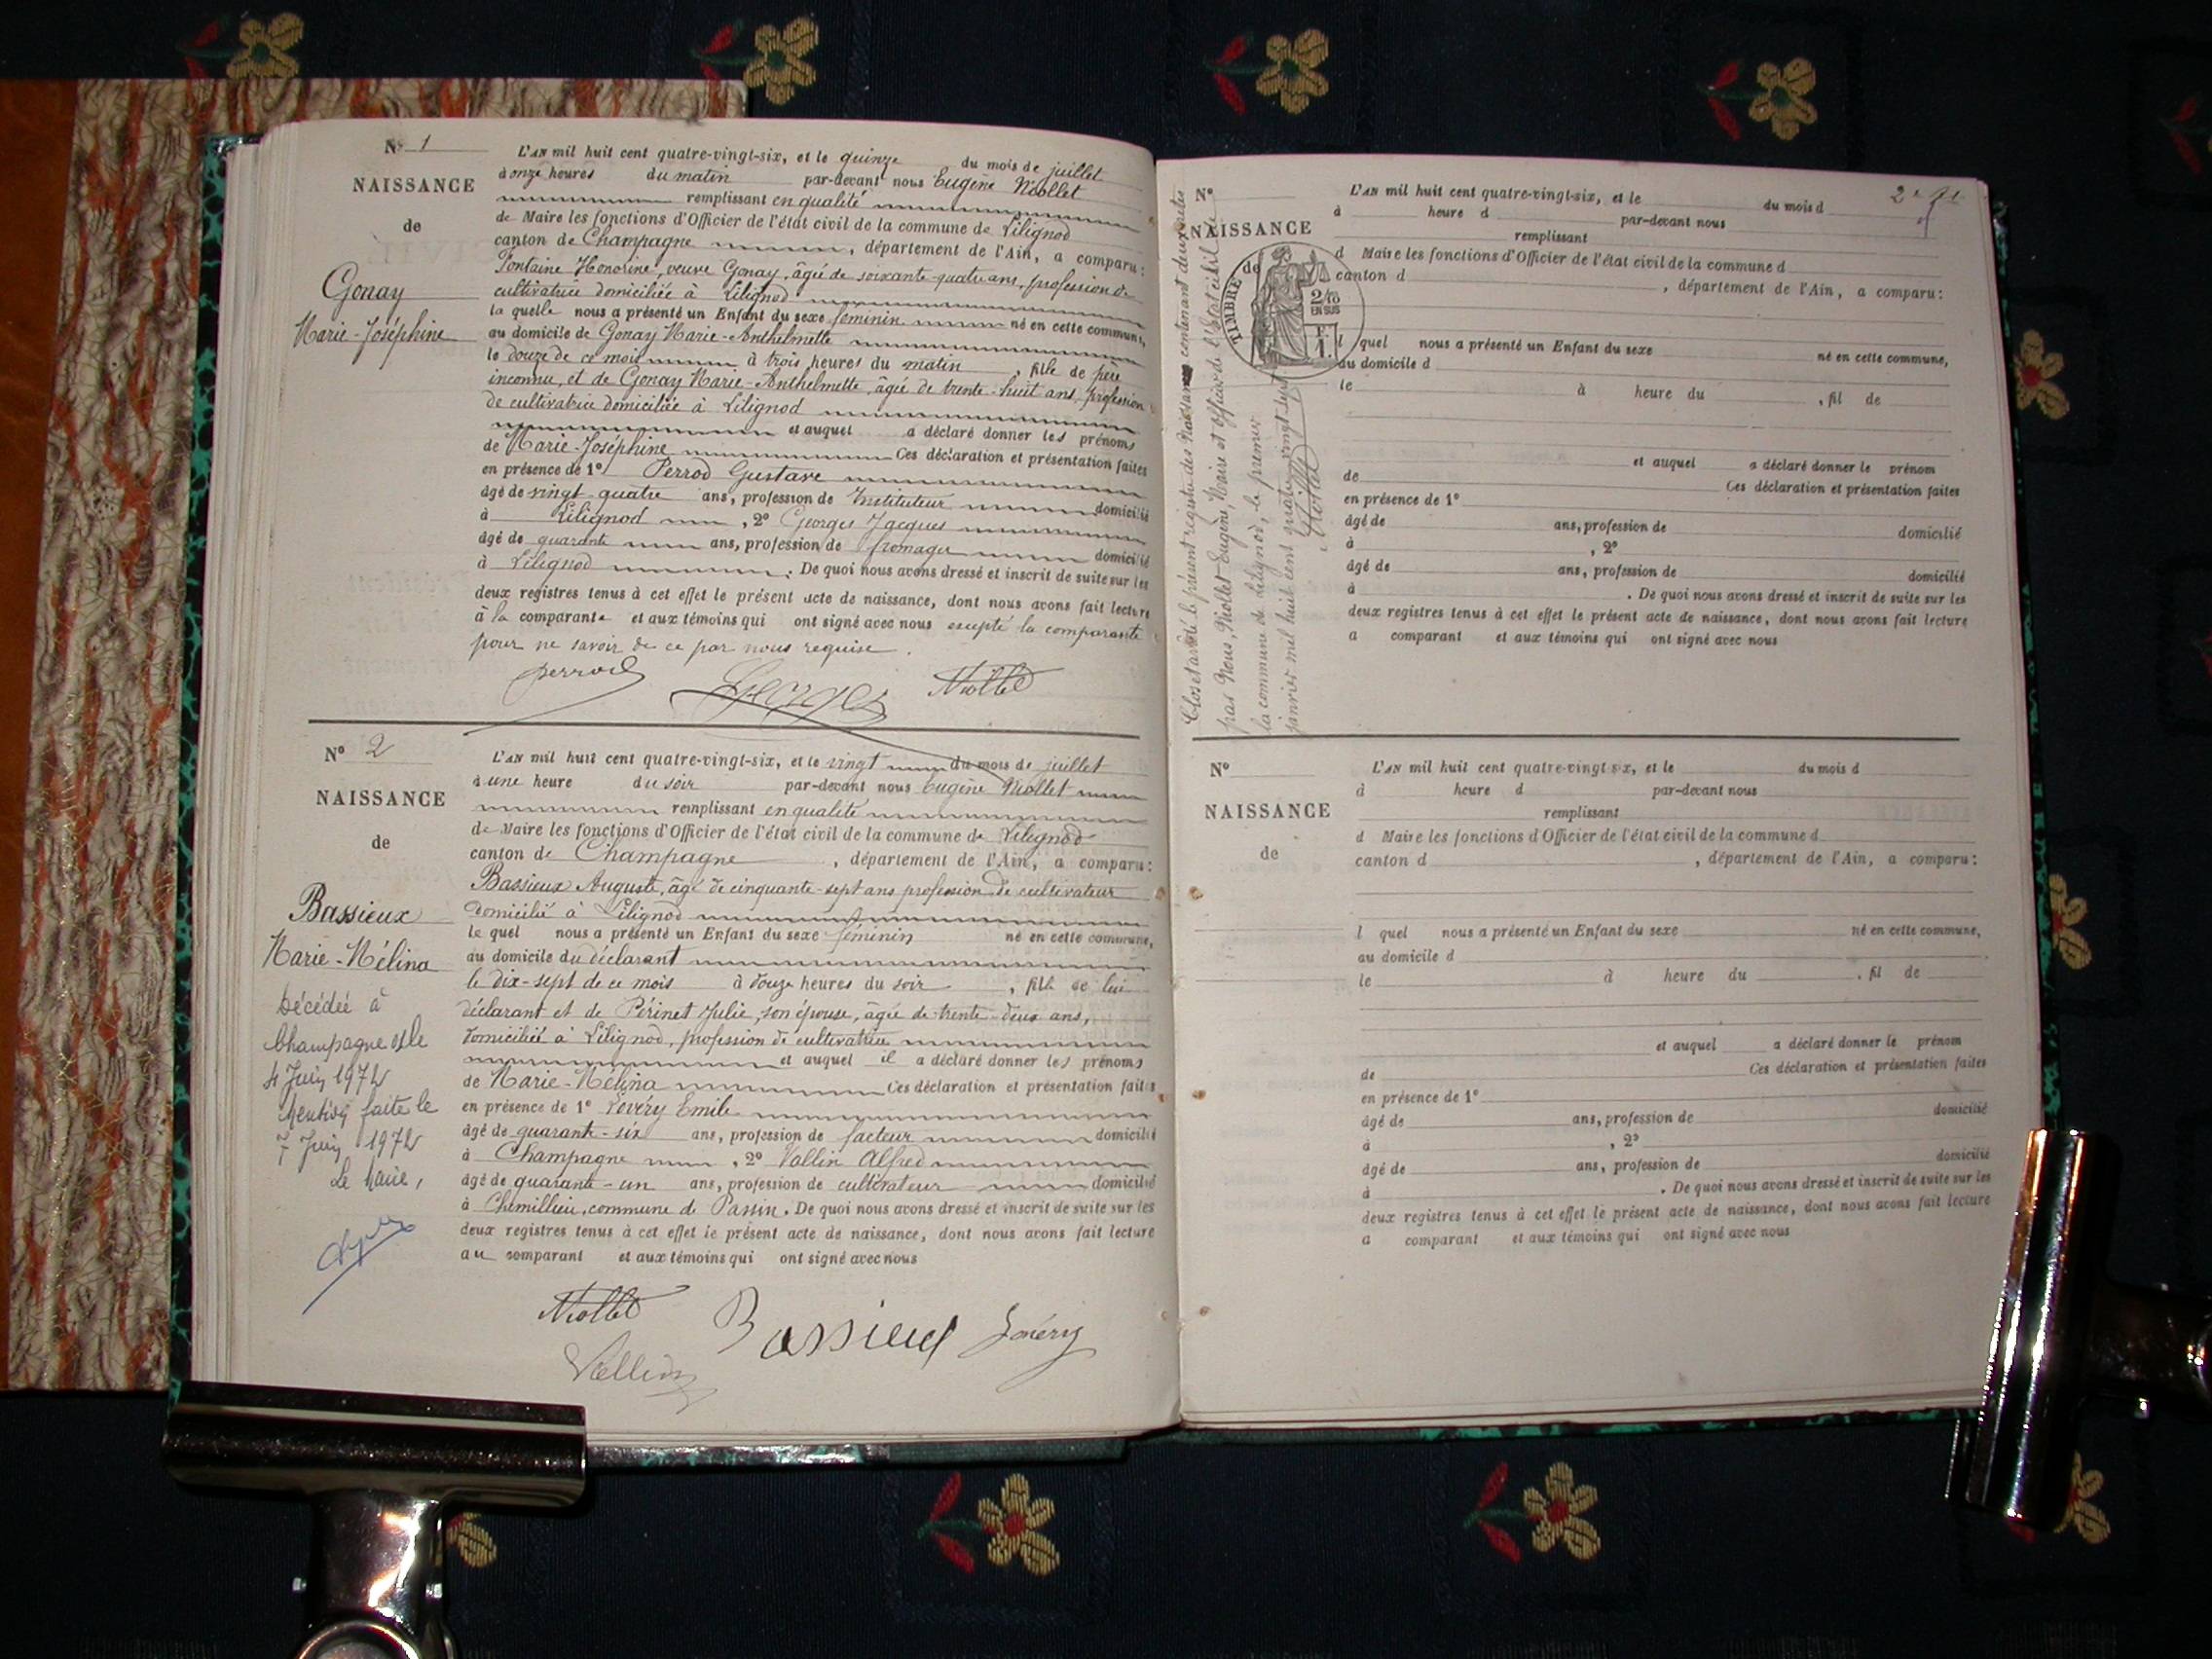 N° 1
NAISSANCE
de
Gonay
Marie-Joséphine
L'AN mil huit cent quatre-vingt-six, et le quinze du mois de juillet
à onze heures du matin par-devant nous Eugène Niollet
remplissant en qualité
de Maire les fonctions d'Officier de l'état civil de la commune de Lilignod
canton de Champagne, département de l'Ain, a comparu:
Fontaine Honorine, veuve Gonay, âgée de soixante-quatre ans, profession de
cultivatrice domiciliée à Lilignod
la quelle nous a présenté un Enfant du sexe féminin né en cette commune,
au domicile de Gonay Marie-Anthelmette
le douze de ce mois à trois heures du matin, fille de père
inconnu, et de Gonay Marie-Anthelmette, âgée de trente-huit ans, profession
de cultivatrice domiciliée à Lilignod
et auquel a déclaré donner les prénoms
de Marie-Joséphine Ces déclaration et présentation faites
en présence de 1° Perrod Gustave
âgé de vingt-quatre ans, profession de Instituteur domicilié
à Lilignod, 2° Georges Jacques
âgé de quarante ans, profession de fromager domicilié
à Lilignod. De quoi nous avons dressé et inscrit de suite sur les
deux registres tenus à cet effet le présent acte de naissance, dont nous avons fait lecture
à la comparante et aux témoins qui ont signé avec nous excepté la comparante
pour ne savoir de ce par nous requise.
Perrod Georges Niollet
N° 2
NAISSANCE
de
Bassieux
Marie-Mélina
Décédée à
Champagne
4 Juin 1972
Mention faite le
7 Juin 1972
Le Maire,
L'AN mil huit cent quatre-vingt-six, et le vingt du mois de juillet
à une heure du soir par-devant nous Eugène Niollet
remplissant en qualité
de Maire les fonctions d'Officier de l'état civil de la commune de Lilignod
canton de Champagne, département de l'Ain, a comparu:
Bassieux Auguste, âgé de cinquante-sept ans profession de cultivateur
domicilié à Lilignod
le quel nous a présenté un Enfant du sexe féminin né en cette commune,
au domicile du déclarant
le dix-sept de ce mois à douze heures du soir, fille de lui
déclarant et de Périnet Julie, son épouse, âgée de trente-deux ans,
domiciliée à Lilignod, profession de cultivatrice
et auquel il a déclaré donner les prénoms
de Marie-Mélina Ces déclaration et présentation faites
en présence de 1° Emile
âgé de quarante-six ans, profession de facteur domicilié
à Champagne, 2° Vallin Alfred
âgé de quarante-un ans, profession de cultivateur domicilié
à Chemillieu, commune de Passin. De quoi nous avons dressé et inscrit de suite sur les
deux registres tenus à cet effet le présent acte de naissance, dont nous avons fait lecture
au comparant et aux témoins qui ont signé avec nous
Niollet Bassieux
Vallin
Clos et arrêté le présent registre des Naissances contenant deux actes
par Nous, Niollet Eugène, Maire et Officier de l'Etat civil de
la commune de Lilignod, le premier
janvier mil huit cent quatre-vingt-sept
Niollet
N°
NAISSANCE
de
TIMBRE
2/10
EN SUS
2e
L'AN mil huit cent quatre-vingt-six, et le du mois d
à heure d par-devant nous
remplissant
d Maire les fonctions d'Officier de l'état civil de la commune d
canton d, département de l'Ain, a comparu:
l quel nous a présenté un Enfant du sexe né en cette commune,
au domicile d
le à heure du, fil de
et auquel a déclaré donner le prénom
de Ces déclaration et présentation faites
en présence de 1°
âgé de ans, profession de domicilié
à, 2°
âgé de ans, profession de domicilié
à. De quoi nous avons dressé et inscrit de suite sur les
deux registres tenus à cet effet le présent acte de naissance, dont nous avons fait lecture
a comparant et aux témoins qui ont signé avec nous
N°
NAISSANCE
de
L'AN mil huit cent quatre-vingt six, et le du mois d
à heure d par-devant nous
remplissant
d Maire les fonctions d'Officier de l'état civil de la commune d
canton d, département de l'Ain, a comparu:
l quel nous a présenté un Enfant du sexe né en cette commune,
au domicile d
le à heure du, fil de
et auquel a déclaré donner le prénom
de Ces déclaration et présentation faites
en présence de 1°
âgé de ans, profession de domicilié
à, 2°
âgé de ans, profession de domicilié
à. De quoi nous avons dressé et inscrit de suite sur les
deux registres tenus à cet effet le présent acte de naissance, dont nous avons fait lecture
a comparant et aux témoins qui ont signé avec nous